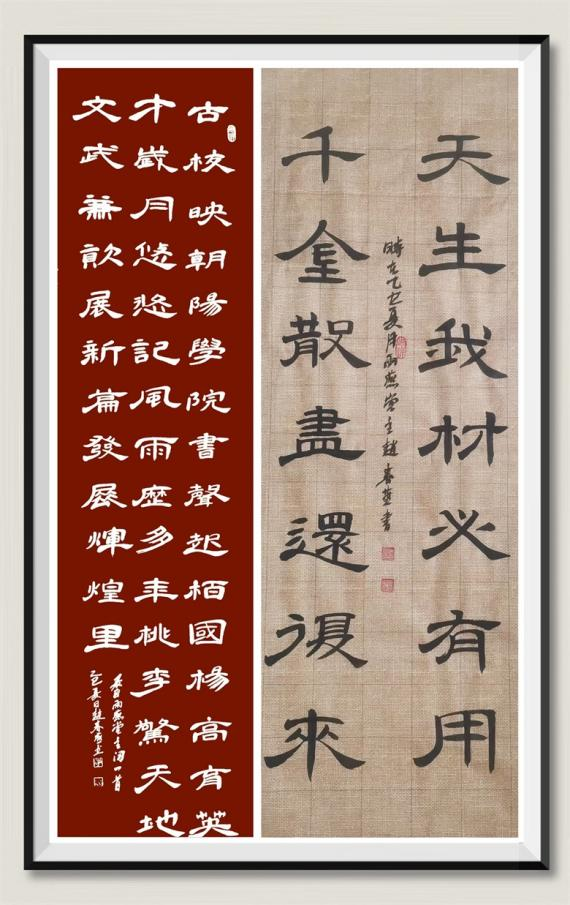 天生我材必有用
千金散盡還復來
時在乙巳夏月雨燕堂主趙春燕書
古校映朝陽學院書聲起栢國楊高有英
才歲月悠悠記風雨歷多年桃李驚天地
文武兼歆展新篇發展輝煌里
雨燕堂主词一首
乙巳夏日趙春燕